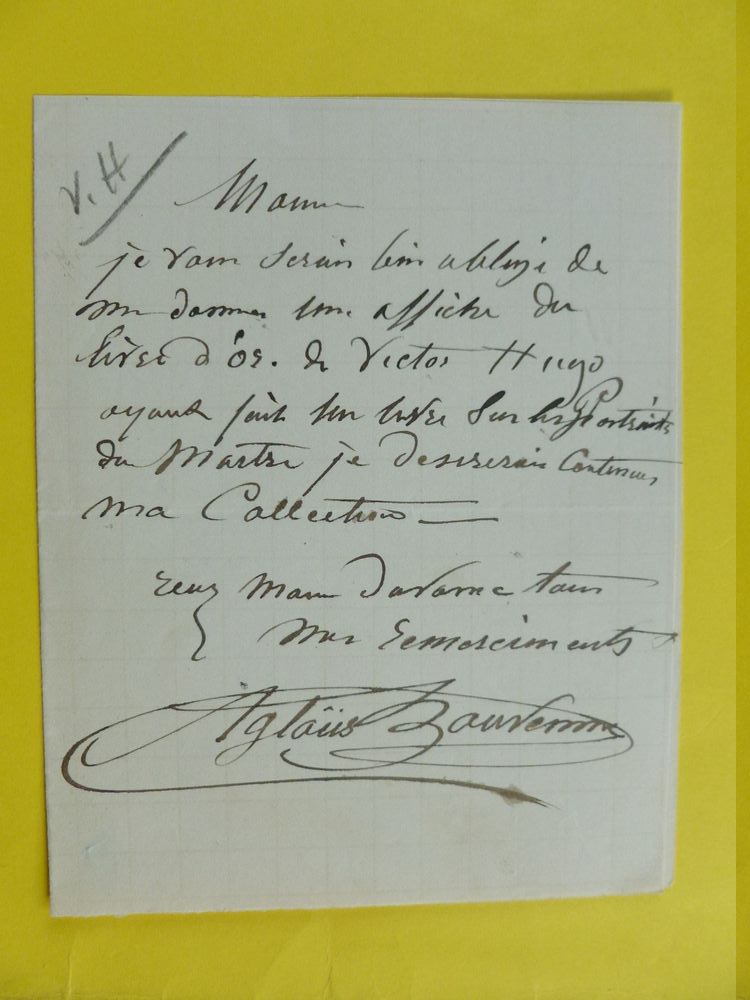 V. H
Monsieur
je vous serais bien obligé de
me donner une affiche du
livre d'or. de Victor Hugo
ayant fait un livre sur les Portraits
du Maitre je desirerais continuer
ma Collection
recevez Monsieur d'avance tous
mes remerciments
Aglaüs Bouvenne